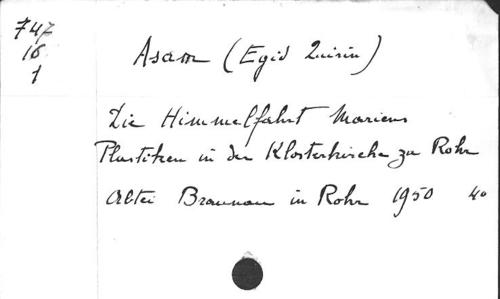 747
16
1
Asam (Egid Quirin)
Die Himmelfahrt Mariens
Plastiken in der Klosterkirche zu Rohr
Abtei Braunau in Rohr 1950 4o